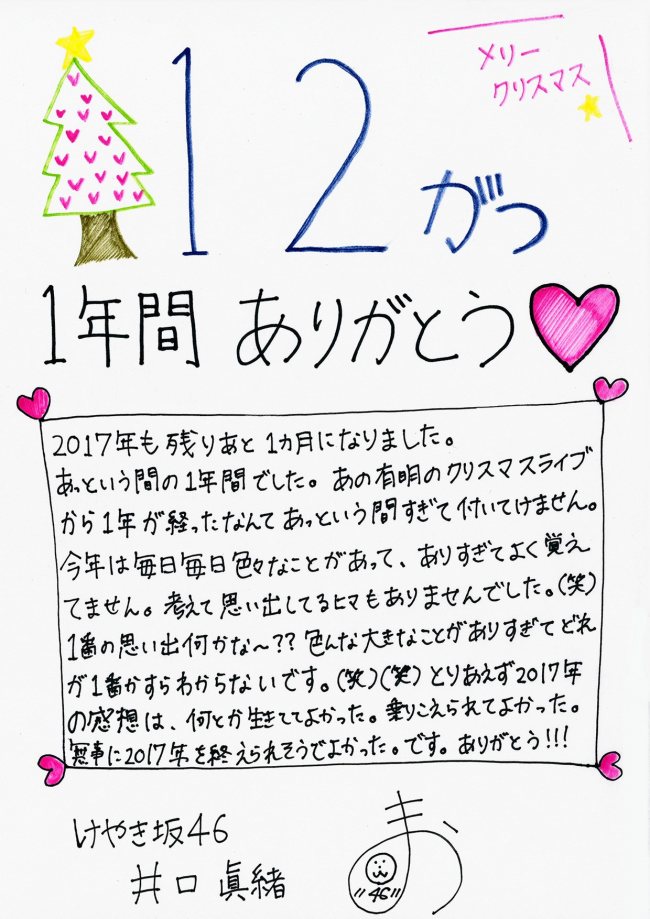 メリー
クリスマス
12がつ
1年間 ありがとう
2017年も残りあと1カ月になりました。
あっという間の1年間でした。あの有明のクリスマスライブ
から1年が経ったなんてあっという間すぎて付いてけません。
今年は毎日毎日色々なことがあって、ありすぎてよく覚え
てません。考えて思い出してるヒマもありませんでした。(笑)
1番の思い出何かな〜?? 色んな大きなことがありすぎてどれ
が1番かすらわからないです。(笑)(笑) とりあえず2017年
の感想は、何とか生きててよかった。乗りこえられてよかった。
無事に2017年を終えられそうでよかった。です。ありがとう!!!
けやき坂46
井口 眞緒
まお
"46"